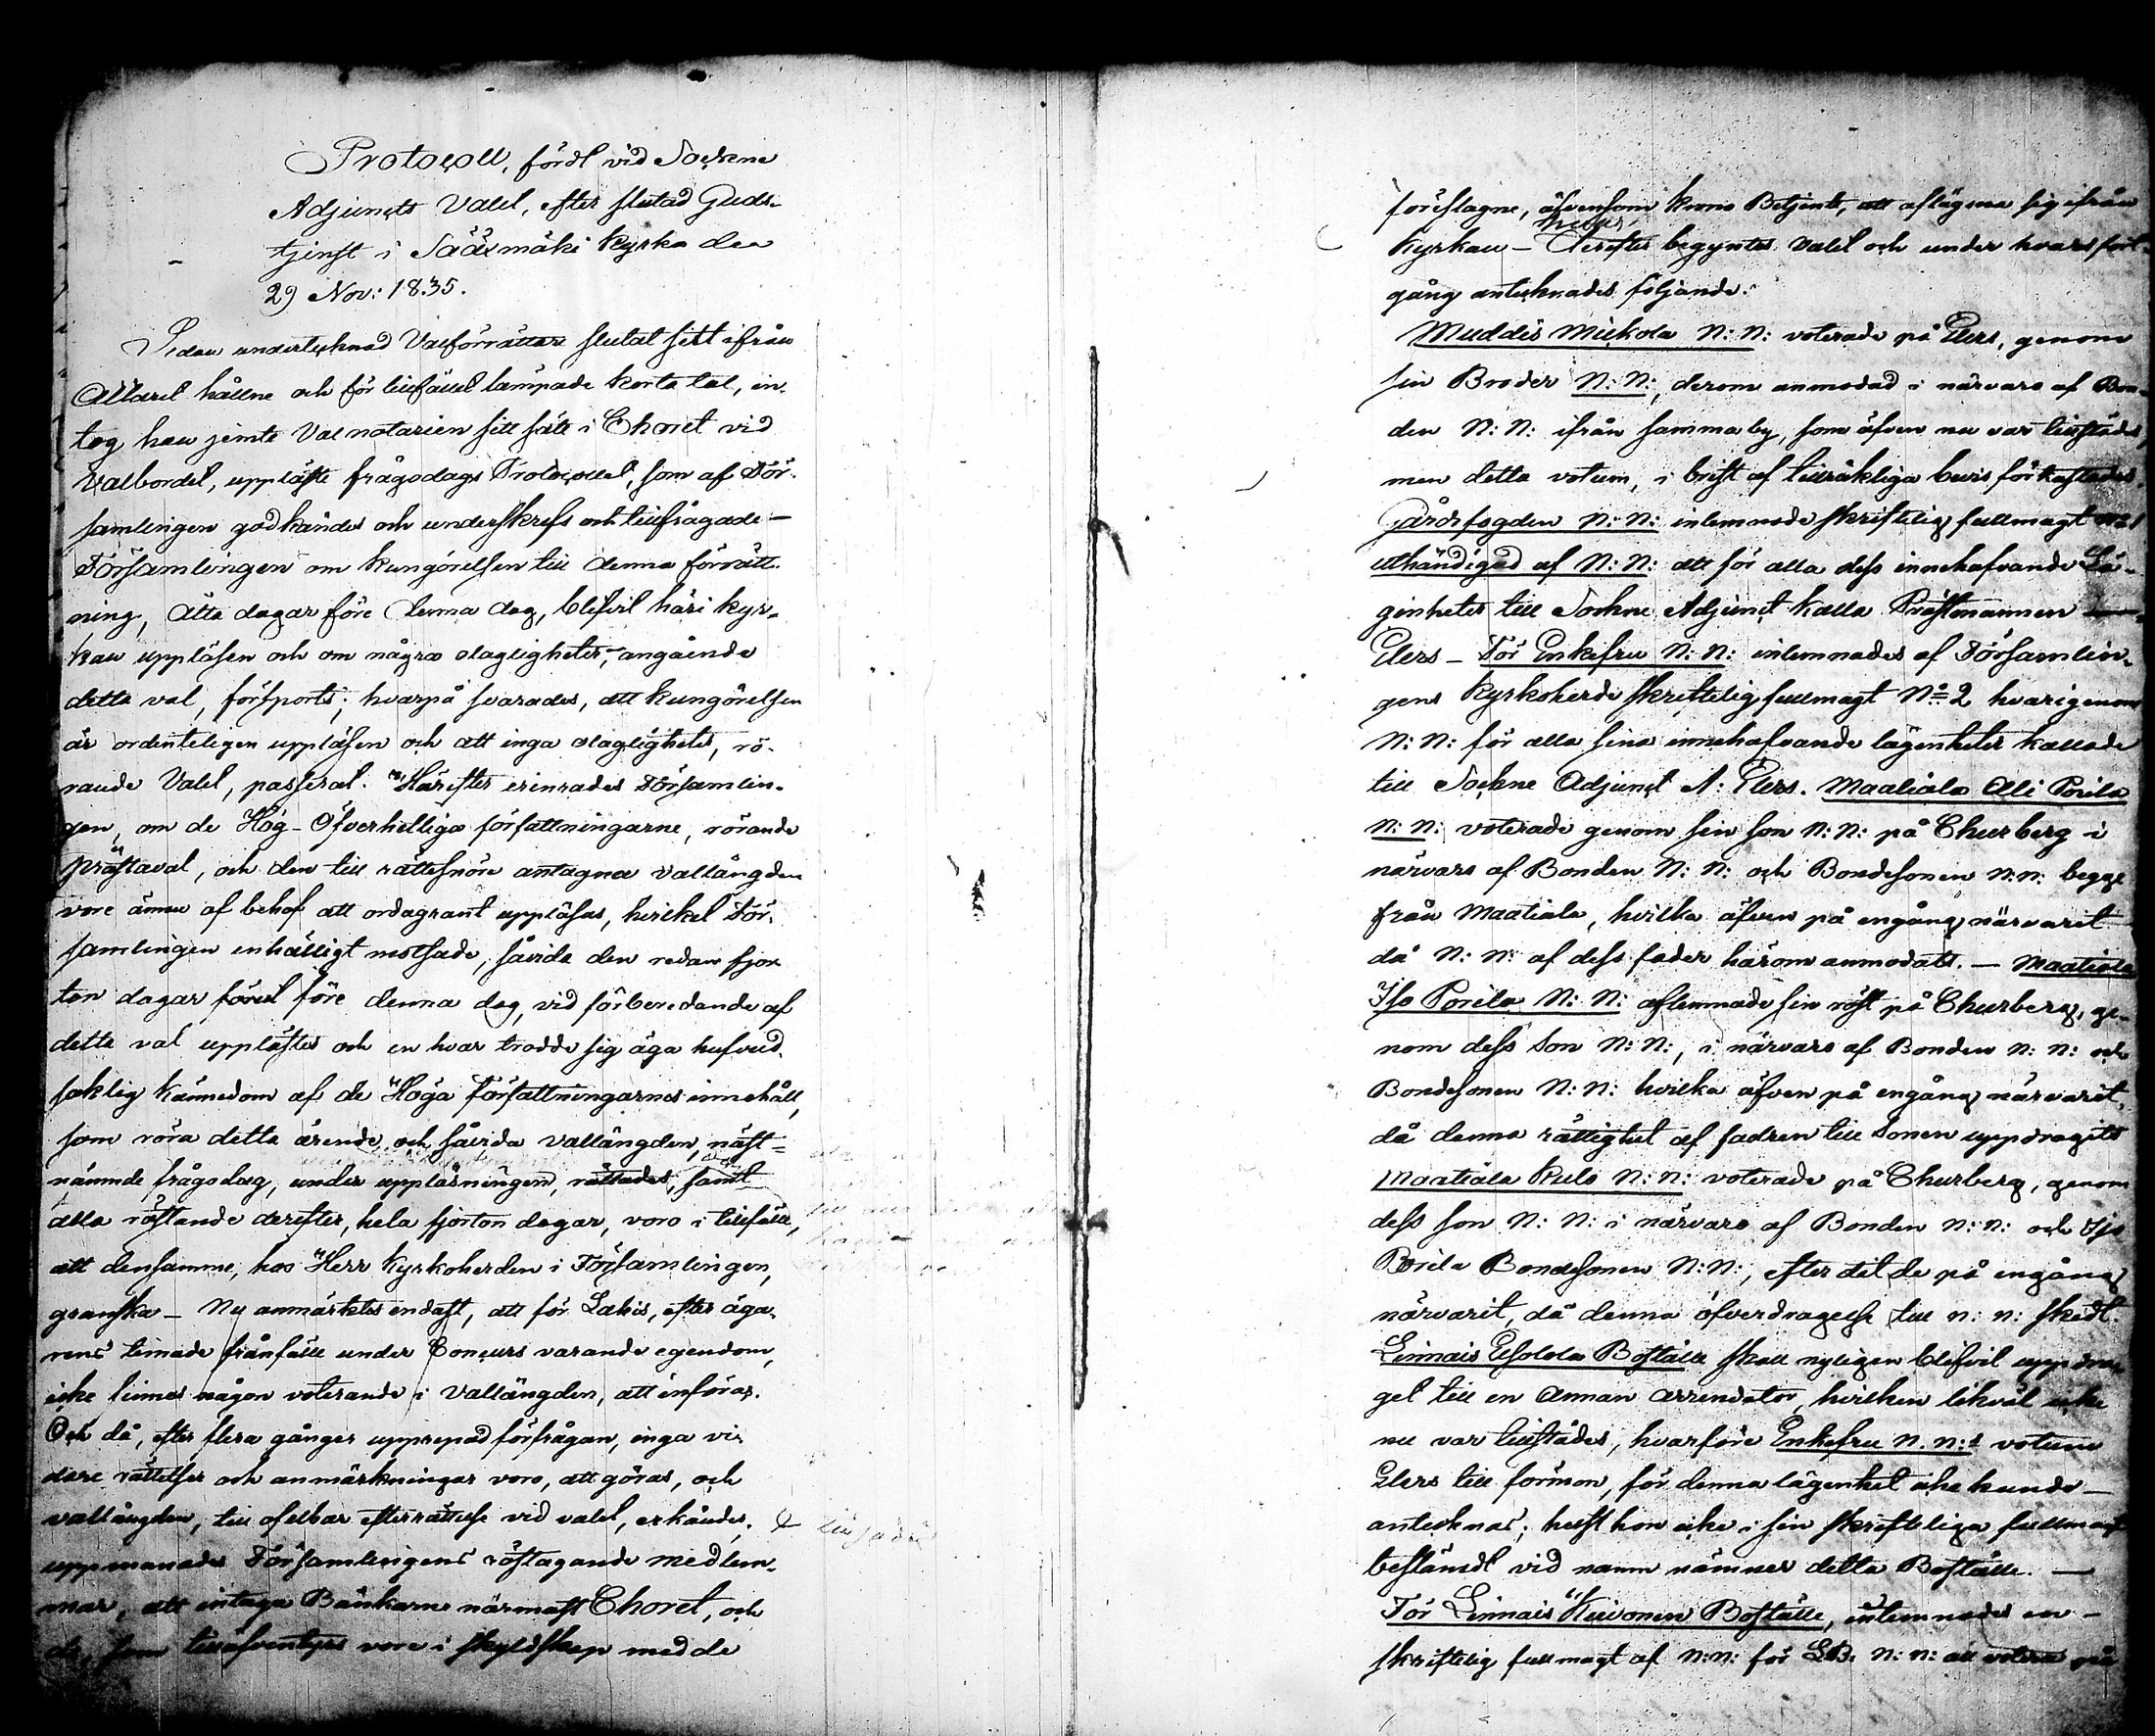 Protocoll, fördt vid Sockne
Adjuncts Valet, efter slutad Guds-
tjenst i Sääxmäki Kyrka den
29 Nov: 1835.
Sedan undertecknad Valförrättare slutat sitt ifrån
Altaret hållne och för tillfället lämpade korta tal, in-
tog han jemte Valnotarien sitt säte i Choret vid
Valbordet, uppläste frågodags Protocollet, som af För-
samlingen godkändes och underskrefs och tillfrågade –
Församlingen om kungörelsen till denna förrätt-
ning, åtta dagar före denna dag, blifvit häri kyr-
kan uppläsen och om några olagligheter, angående
detta val, försports; hvarpå svarades, att kungörelsen
är ordenteligen uppläsen och att inga olagligheter, rö-
rande Valet, passerat. Härefter erinrades Församlin-
gen, om de Hög-Öfverhetliga författningarne, rörande
prästaval, och den till rättesnöre antagna vallängden
vore ännu af behof att ordagrant uppläsas, hvilket För-
samlingen enhälligt motsade, såvida den redan fjor-
ton dagar förut före denna dag, vid förberedande af
detta val upplästes och en hvar trodde sig äga hufvud-
saklig kännedom af de Höga Författningarnes innehåll,
som röra detta ärende och såvida vallängden, näst-
nämnde frågodag, under uppläsningen, rättades, samt
alla röstande derefter, hela fjorton dagar, voro i tillfälle,
att densamme, hos Herr Kyrkoherden i Församlingen,
granska – Nu anmärktes endast, att för Lahis, efter äga-
rens timade frånfälle under Concurs varande egendom,
icke finnes någon voterande i Vallängden, att införas.
Och då, efter flera gånger upprepad förfrågan, inga vi-
dare rättelser och anmärkningar voro, att göras, och
vallängden, till ofelbar efterrättelse vid valet, erkändes,
uppmanades Församlingens röstagande medlem-
mar, att intaga Bänkarne närmast Choret, och
de, som tilläfventyrs vore i skyldskap med de
föreslagne, äfvensom krono Betjente, att aflägsna sig ifrån
Kyrkan – Derefter begyntes Valet och under hvars fort-
gång antecknades följande:
Muddis Mickola N: N: voterade på Elers, genom
sin Broder N: N:, derom anmodad i närvaro af Bon-
den N: N: ifrån samma by, som äfven nu var tillstädes,
men detta votum, i brist af tillräkliga bevis förkastades.
Gårdsfogden N: N: inlemnade skriftelig fullmagt No 1
uthändigad af N: N: att för alla dess innehafvande Lä-
genheter till Sockne Adjunct kalla Prästmannen
Elers – För Enkefru N: N: inlemnades af Församlin-
gens Kyrkoherde skriftelig fullmagt No 2 hvarigenom
N: N: för alla sina innehafvande lägenheter kallade
till Sockne Adjunct A: Elers. Maatiala Ali Porila
N: N: voterade genom sin son N: N: på Churberg i
närvaro af Bonden N: N: och Bondesonen N: N: begge
från Maatiala, hvilka äfven på engång närvarit
då N: N: af dess fader härom anmodats. – Maatiala
Iso Porila N: N: aflemnade sin röst på Churberg, ge-
nom dess son N: N:, i närvaro af Bonden N: N: och
Bondesonen N: N: hvilka äfven på engång närvarit,
då denna rättighet af fadren till Sonen uppdragits
Maatiala Kulo N: N: voterade på Churberg, genom
dess son N: N: i närvaro af Bonden N: N: och Iso
Porila Bondesonen N: N:, efter det de på engång
närvarit, då denna öfverdragelse till N: N: skedt.
Linnais Esolola Boställe skall nyligen blifvit uppdra-
get till en annan arrendator, hvilken likväl icke
nu var tillstädes, hvarföre Enkefru N. N:s votum
Elers till förmon, för denna lägenhet icke kunde –
antecknas; helst hon icke i sin skrifteliga fullmagt
bestämdt vid namn nämner detta Boställe. –
För Linnais Kuivonen Boställe, inlemnades en –
skriftelig fullmagt af N: N: för N: N: att votera på